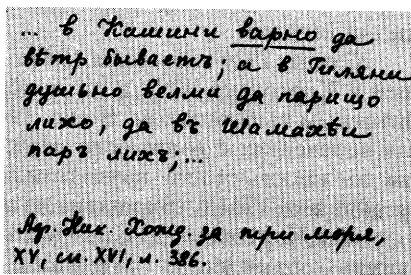 ... в Кашини варно да
вѣтр бываетъ; а в Гиляни
душьно велми да парищо
лихо, да въ Шамахѣи
паръ лихъ;...
Аф. Ник. Хожд. за три моря,
XV, сп. XVI, л. 386.